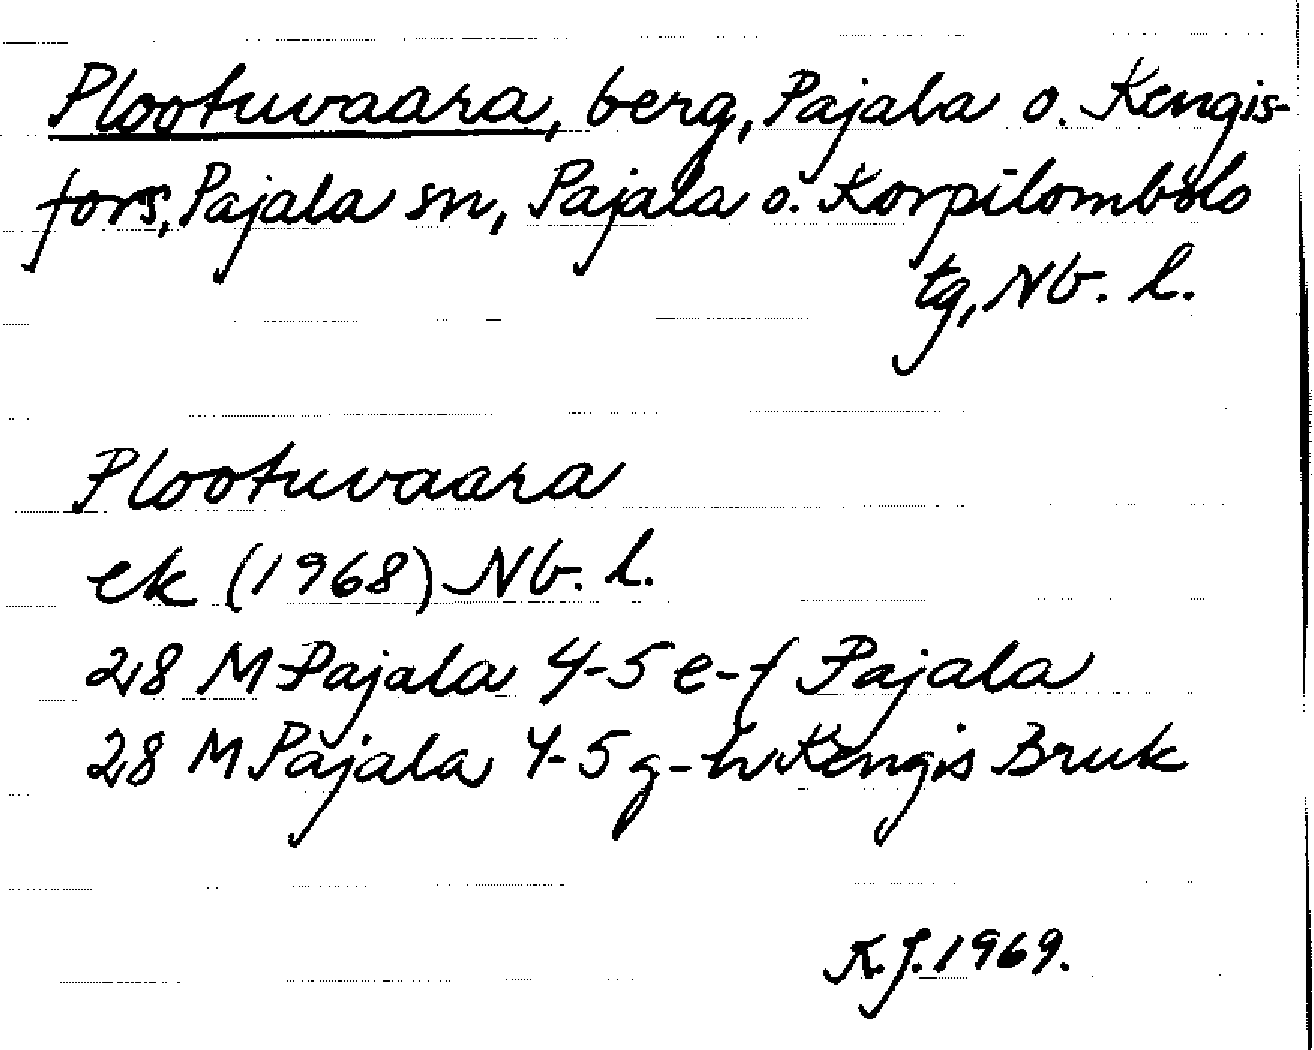 Plootuvaara, berg, Pajala o. Kengis-
fors, Pajala sn, Pajala o. Korpilombolo
tg, Nb. l.
Plootuvaara
ek (1968) Nb. l.
28 M Pajala 4-5 e-f Pajala
28 M Pajala 4-5 g-h Kengis Bruk
K.J. 1969.